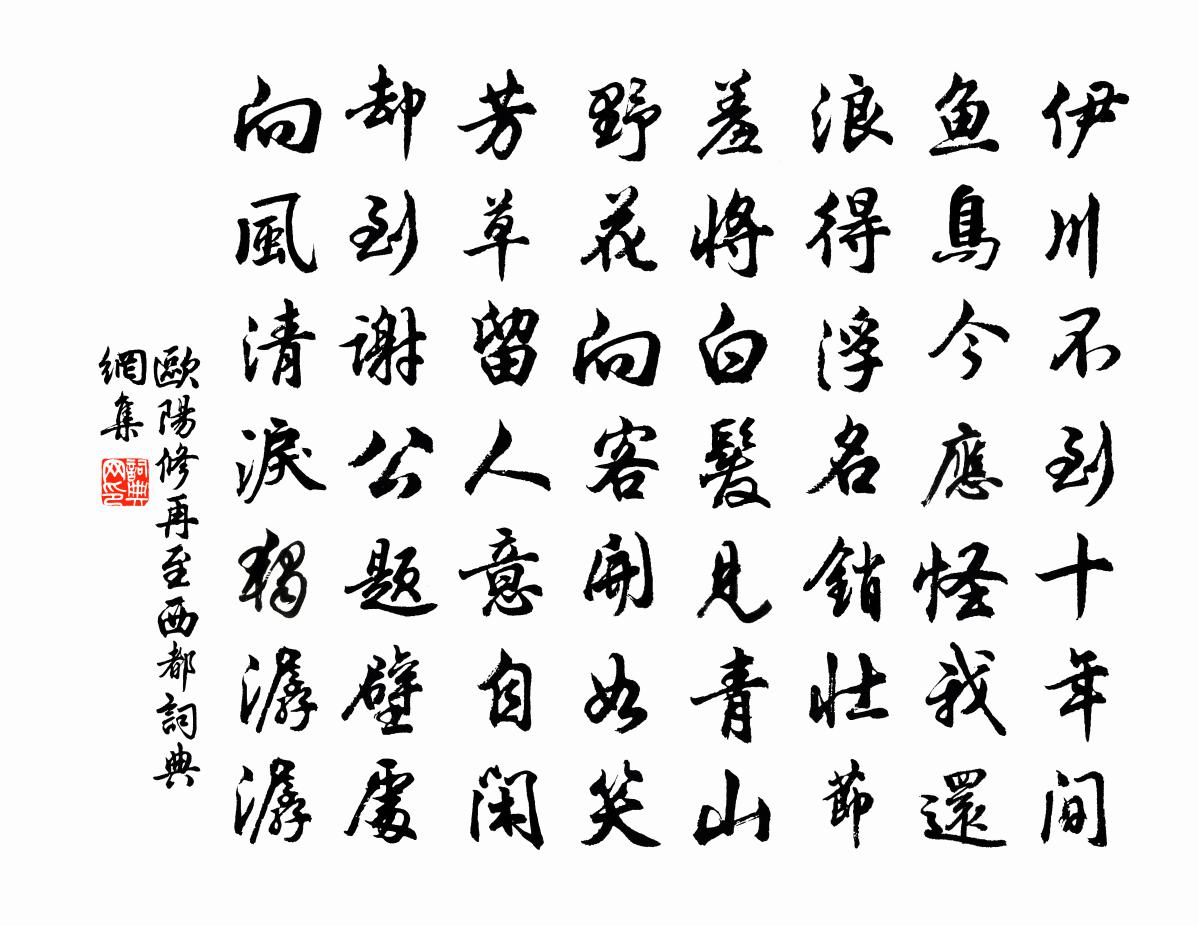 伊川不到十年間
魚鳥今應怪我還
浪得浮名銷壯節
羞將白髮見青山
野花向客開如笑
芳草留人意自閑
却到謝公題壁處
向風清淚獨潺潺
歐陽修再至西都詞典
網集
詞典
网印